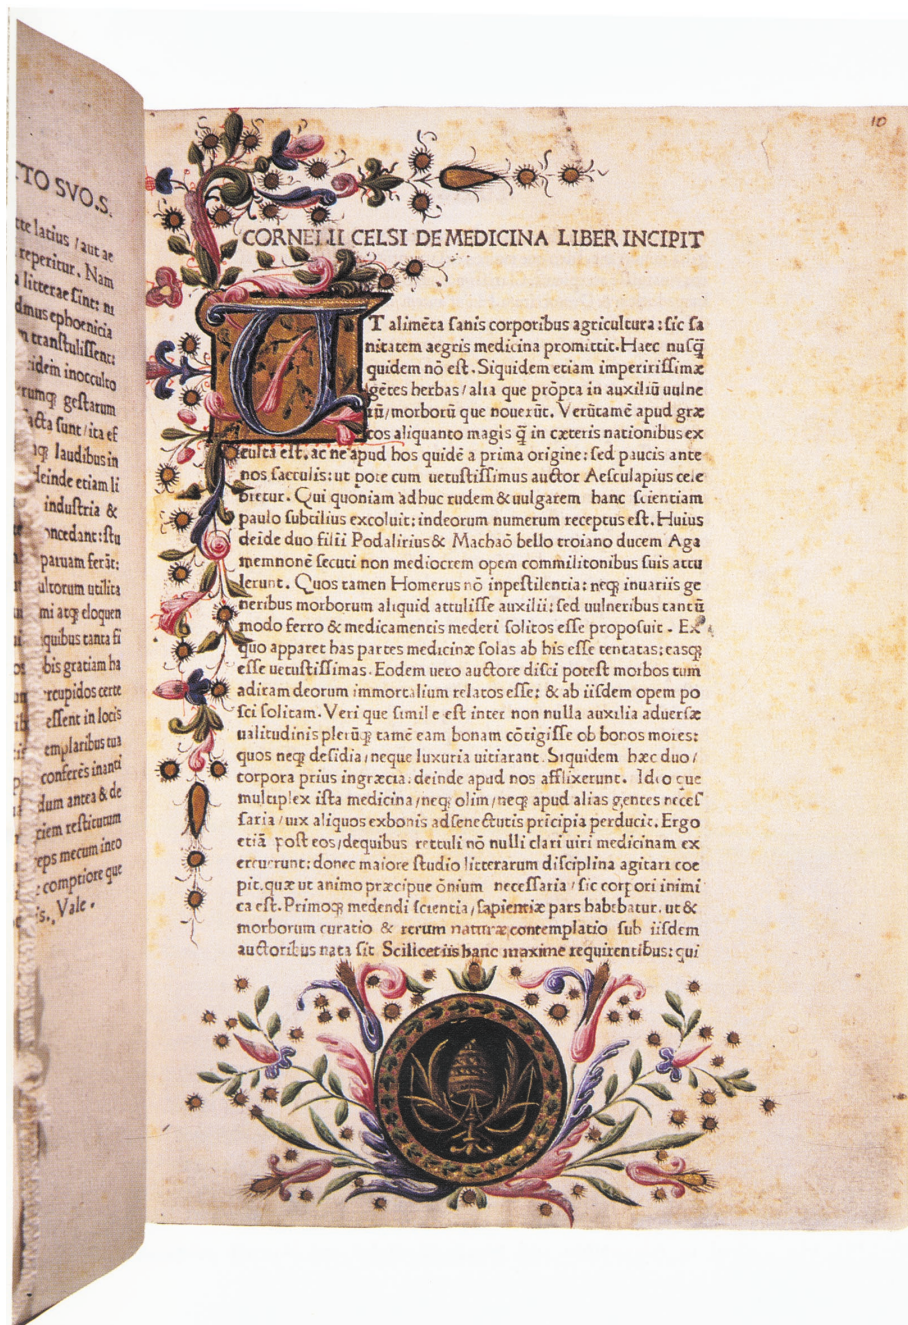 TO SVO.S.
te latius / aut ae
reperitur. Nam
litterae sint: ni
dmus ephoenicia
transtulissent:
idem inocculto
rumq̨ gestarum
facta sunt / ita ef
q̨ laudibus in
deinde etiam li
industria &
oncedant: stu
paruam ferāt:
ultorum utilita
mi atq̨ eloquen
quibus tanta fi
bis gratiam ha
cupidos certe
essent in locis
emplaribus tua
conferēs inanti
dum antea & de
tiem restitutum
eps mecum ineo
comptiore que
Vale .
10
CORNELII CELSI DE MEDICINA LIBER INCIPIT
UT alimēta sanis corporibus agricultura: sic sa
nitatem aegris medicina promittit. Haec nusq̄
quidem nō est. Siquidem etiam imperitissimæ
gētes herbas / alia que prōpta in auxiliū uulne
rū / morborū que nouerūt. Verūtamē apud græ
cos aliquanto magis q̄ in cæteris nationibus ex
culta est. ac ne apud hos quidē a prima origine: sed paucis ante
nos sæculis: ut pote cum uetustissimus auctor Aesculapius cele
bretur. Qui quoniam adhuc rudem & uulgarem hanc scientiam
paulo subtilius excoluit: indeorum numerum receptus est. Huius
deide duo filii Podalirius & Machaō bello troiano ducem Aga
memnonē secuti non mediocrem opem commilitonibus suis attu
lerunt. Quos tamen Homerus nō inpestilentia: neq̨ inuariis ge
neribus morborum aliquid attulisse auxilii: sed uulneribus tantū
modo ferro & medicamentis mederi solitos esse proposuit . Ex
quo apparet has partes medicinæ solas ab his esse tentatas: easq̨
esse uetustissimas. Eodem uero auctore disci potest morbos tum
adiram deorum immortalium relatos esse: & ab iisdem opem po
sci solitam. Veri que simile est inter non nulla auxilia aduersæ
ualitudinis plerūq̨ tamē eam bonam cōtigisse ob bonos mores:
quos neq̨ desidia / neque luxuria uitiarant. Siquidem hæc duo /
corpora prius ingræcia. deinde apud nos afflixerunt. Ideo que
multiplex ista medicina / neq̨ olim / neq̨ apud alias gentes neces
saria / uix aliquos exbonis adsenectutis pricipia perducit. Ergo
etiā post eos / dequibus rettuli nō nulli clari uiri medicinam ex
ercuerunt: donec maiore studio litterarum disciplina agitari coe
pit. quæ ut animo præcipue ōnium necessaria / sic corpori inimi
ca est. Primoq̨ medendi scientia / sapientiæ pars habebatur. ut &
morborum curatio & rerum naturæ contemplatio sub iisdem
auctoribus nata sit Scilicet iis hanc maxime requirentibus: qui